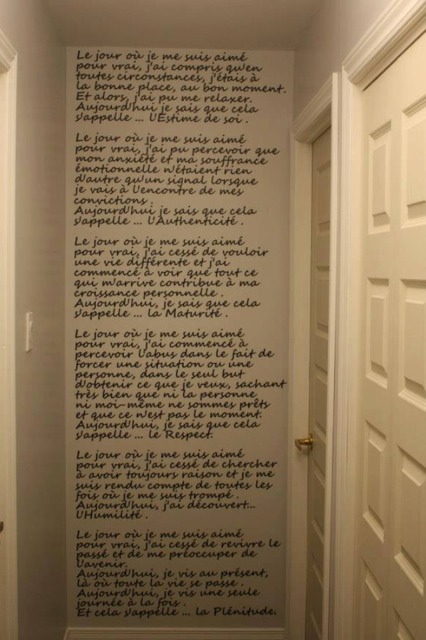 Le jour où je me suis aimé
pour vrai, j'ai compris qu'en
toutes circonstances, j'étais à
la bonne place, au bon moment.
Et alors, j'ai pu me relaxer.
Aujourd'hui je sais que cela
s'appelle ... L'Estime de soi .
Le jour où je me suis aimé
pour vrai, j'ai pu percevoir que
mon anxiété et ma souffrance
émotionnelle n'étaient rien
d'autre qu'un signal lorsque
je vais à l'encontre de mes
convictions .
Aujourd'hui je sais que cela
s'appelle ... L'Authenticité .
Le jour où je me suis aimé
pour vrai, j'ai cessé de vouloir
une vie différente et j'ai
commencé à voir que tout ce
qui m'arrive contribue à ma
croissance personnelle .
Aujourd'hui, je sais que cela
s'appelle ... la Maturité .
Le jour où je me suis aimé
pour vrai, j'ai commencé à
percevoir l'abus dans le fait de
forcer une situation ou une
personne, dans le seul but
d'obtenir ce que je veux, sachant
très bien que ni la personne
ni moi-même ne sommes prêts
et que ce n'est pas le moment.
Aujourd'hui, je sais que cela
s'appelle ... le Respect.
Le jour où je me suis aimé
pour vrai, j'ai cessé de chercher
à avoir toujours raison et je me
suis rendu compte de toutes les
fois où je me suis trompé .
Aujourd'hui, j'ai découvert...
L'Humilité .
Le jour où je me suis aimé
pour vrai, j'ai cessé de revivre le
passé et de me préoccuper de
l'avenir.
Aujourd'hui, je vis au présent,
là où toute la vie se passe .
Aujourd'hui, je vis une seule
journée à la fois .
Et cela s'appelle ... la Plénitude.